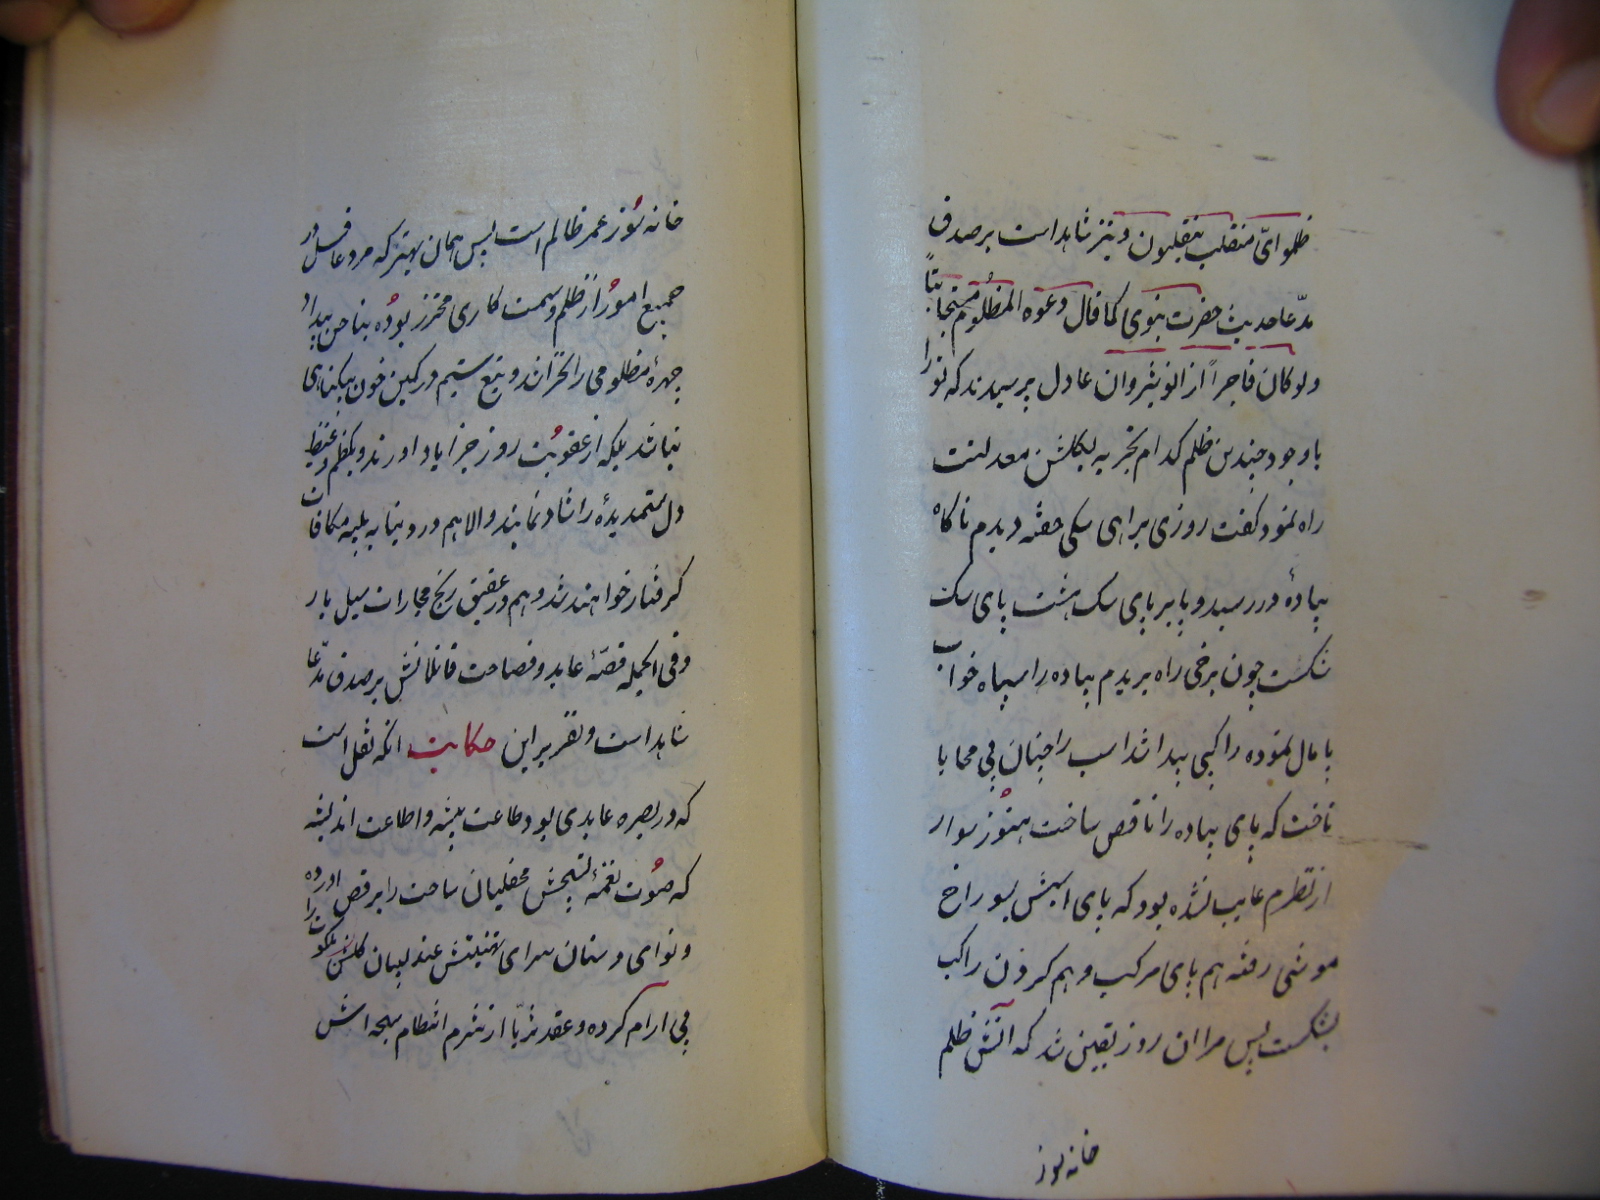 ظلموا ایّ منقلب ینقلبون و نیز شاهد است بر صدق
مدّعا حدیث حضرت نبوی کما قال دعوه المظلوم مستجابتاً
ولو کان فاجراً از انوشیروان عادل پرسیدند که تو را
باوجود چندین ظلم کدام تجربه بگلشن معدلت
راه نمود گفت روزی براهی سکی خفته دیدم ناکاه
پیادهٔ در رسید و پا بر پای سک هشت پای سک
شکست چون برخی راه بریدم پیاده را سپاه خواب
پامال نموده راکبی پیدا شد اسب را چنان بی محابا
تاخت که پای پیاده را ناقص ساخت هنوز سوار
از نظرم غایب نشده بود که پای اسبش بسوراخ
موشی رفته هم پای مرکب و هم کردن راکب
بشکست پس مرا ان روز یقین شد که اتش ظلم
خانه سوز
خانه سُوز عمر ظالم است پس همان بهتر که مرد عاقل در
جمیع امور از ظلم و سمت کاری محترز بوده بناخن بیداد
چهرهٔ مظلومی را نخراشد و بتیغ ستیم در کمین خون بیکناهی
نباشد بلکه از عقوبت روز جزا یاد اورند و بکظم و غیظ
دل ستمدیدهٔ را شاد نمایند والا هم در دنیا به بلیه مکافات
کرفتار خواهند شد و هم در عقبی رنج مجازات سیل بار
و فی الجمله قصّهٔ عابد و فصاحت قاتلانش بر صدق مدّعا
شاهد است و تقریر این حکایت انکه نقل است
که در بصره عابدی بود طاعت پیشه و اطاعت اندیشه
که صُوت نغمهٔ تسبیحش محفلیان ساحت را برقص اورده
و نوای دستان سرای تهنیتش عندلیبان کلشن ملکوت را
بی ارام کرده و عقد ثریّا از شرم انتظام سبحه اش